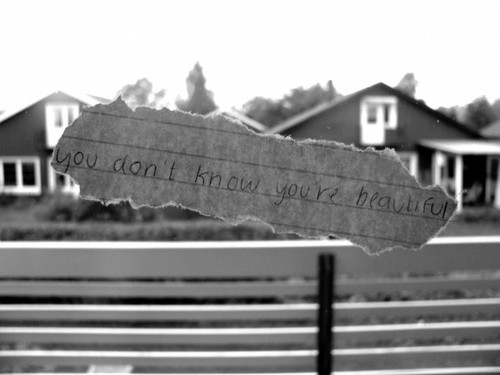 you don't know you're beautiful